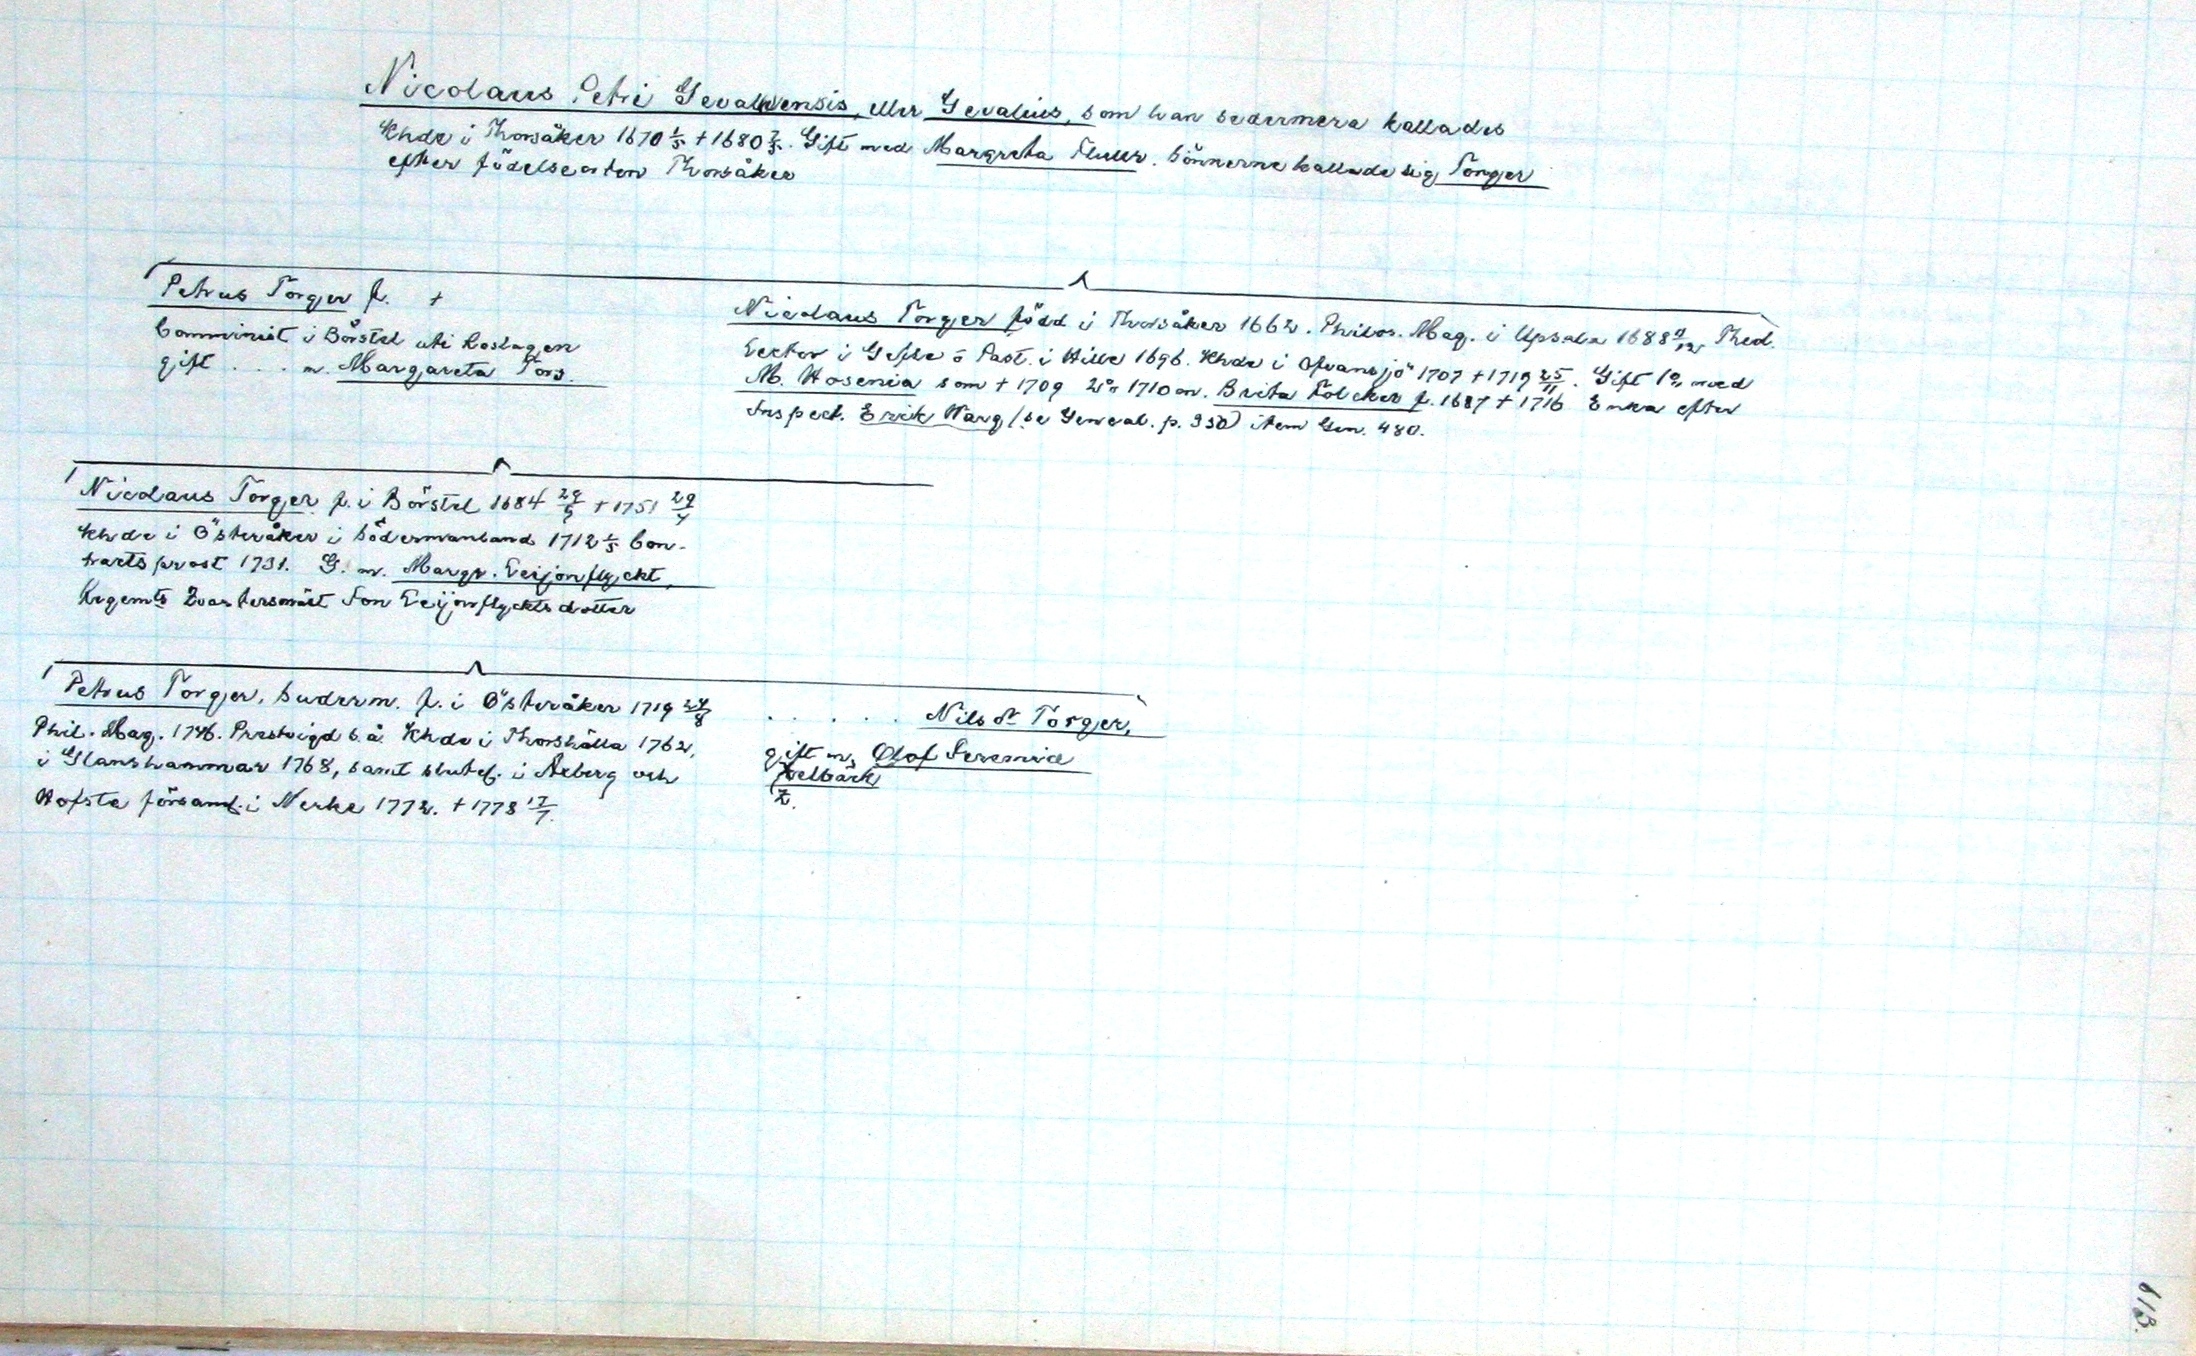 Nicolaus Petri Gevaliensis, eller Gevalius, som han sedermera kallades
Khde i Thorsåker 1670 1/5 + 1680 2/5. Gift med Margreta Fluur. Sönnerne kallade sig Torger
efter födelseorten Thorsåker
Petrus Torger f. +
Comminist i Börstel uti Roslagen
gift . . . m. Margareta Tors.
Nicolaus Torger född i Thorsåker 1662. Philos. Mag. i Upsala 1688 Theol.
Lector i Gefle ō Past. i Hille 1696. Khde i Ofvansjö 1707 + 1719 25/11. Gift 1o med
M. Hosenia som + 1709 2o 1710 m. Brita Folcker f. 1687 + 1716 Enka efter
Inspect. Erik Warg (se Geneal. p. 350) item Gen. 480.
Nicolaus Torger f. i Börstel 1684 29/5 + 1751 29/4
Khde i Österåker i Södermanland 1712 1/5 Con-
tractsprost 1731. G. m. Margr. Leijonflyckt,
Regemts Qvartersmäst Jon Leijonflyckts dotter
Petrus Torger, Suderm. f. i Österåker 1719 24/8
Phil. Mag. 1746. Prestvigd s. å. Khde i Thorshälla 1762,
i Glanshammar 1768, samt slutel. i Axberg och
Hofsta församl. i Nerke 1772. + 1773 17/7.
. . . . . Nils dr Torger,
gift m. Olof Jeremiæ
Zelbäck
Z.
113.